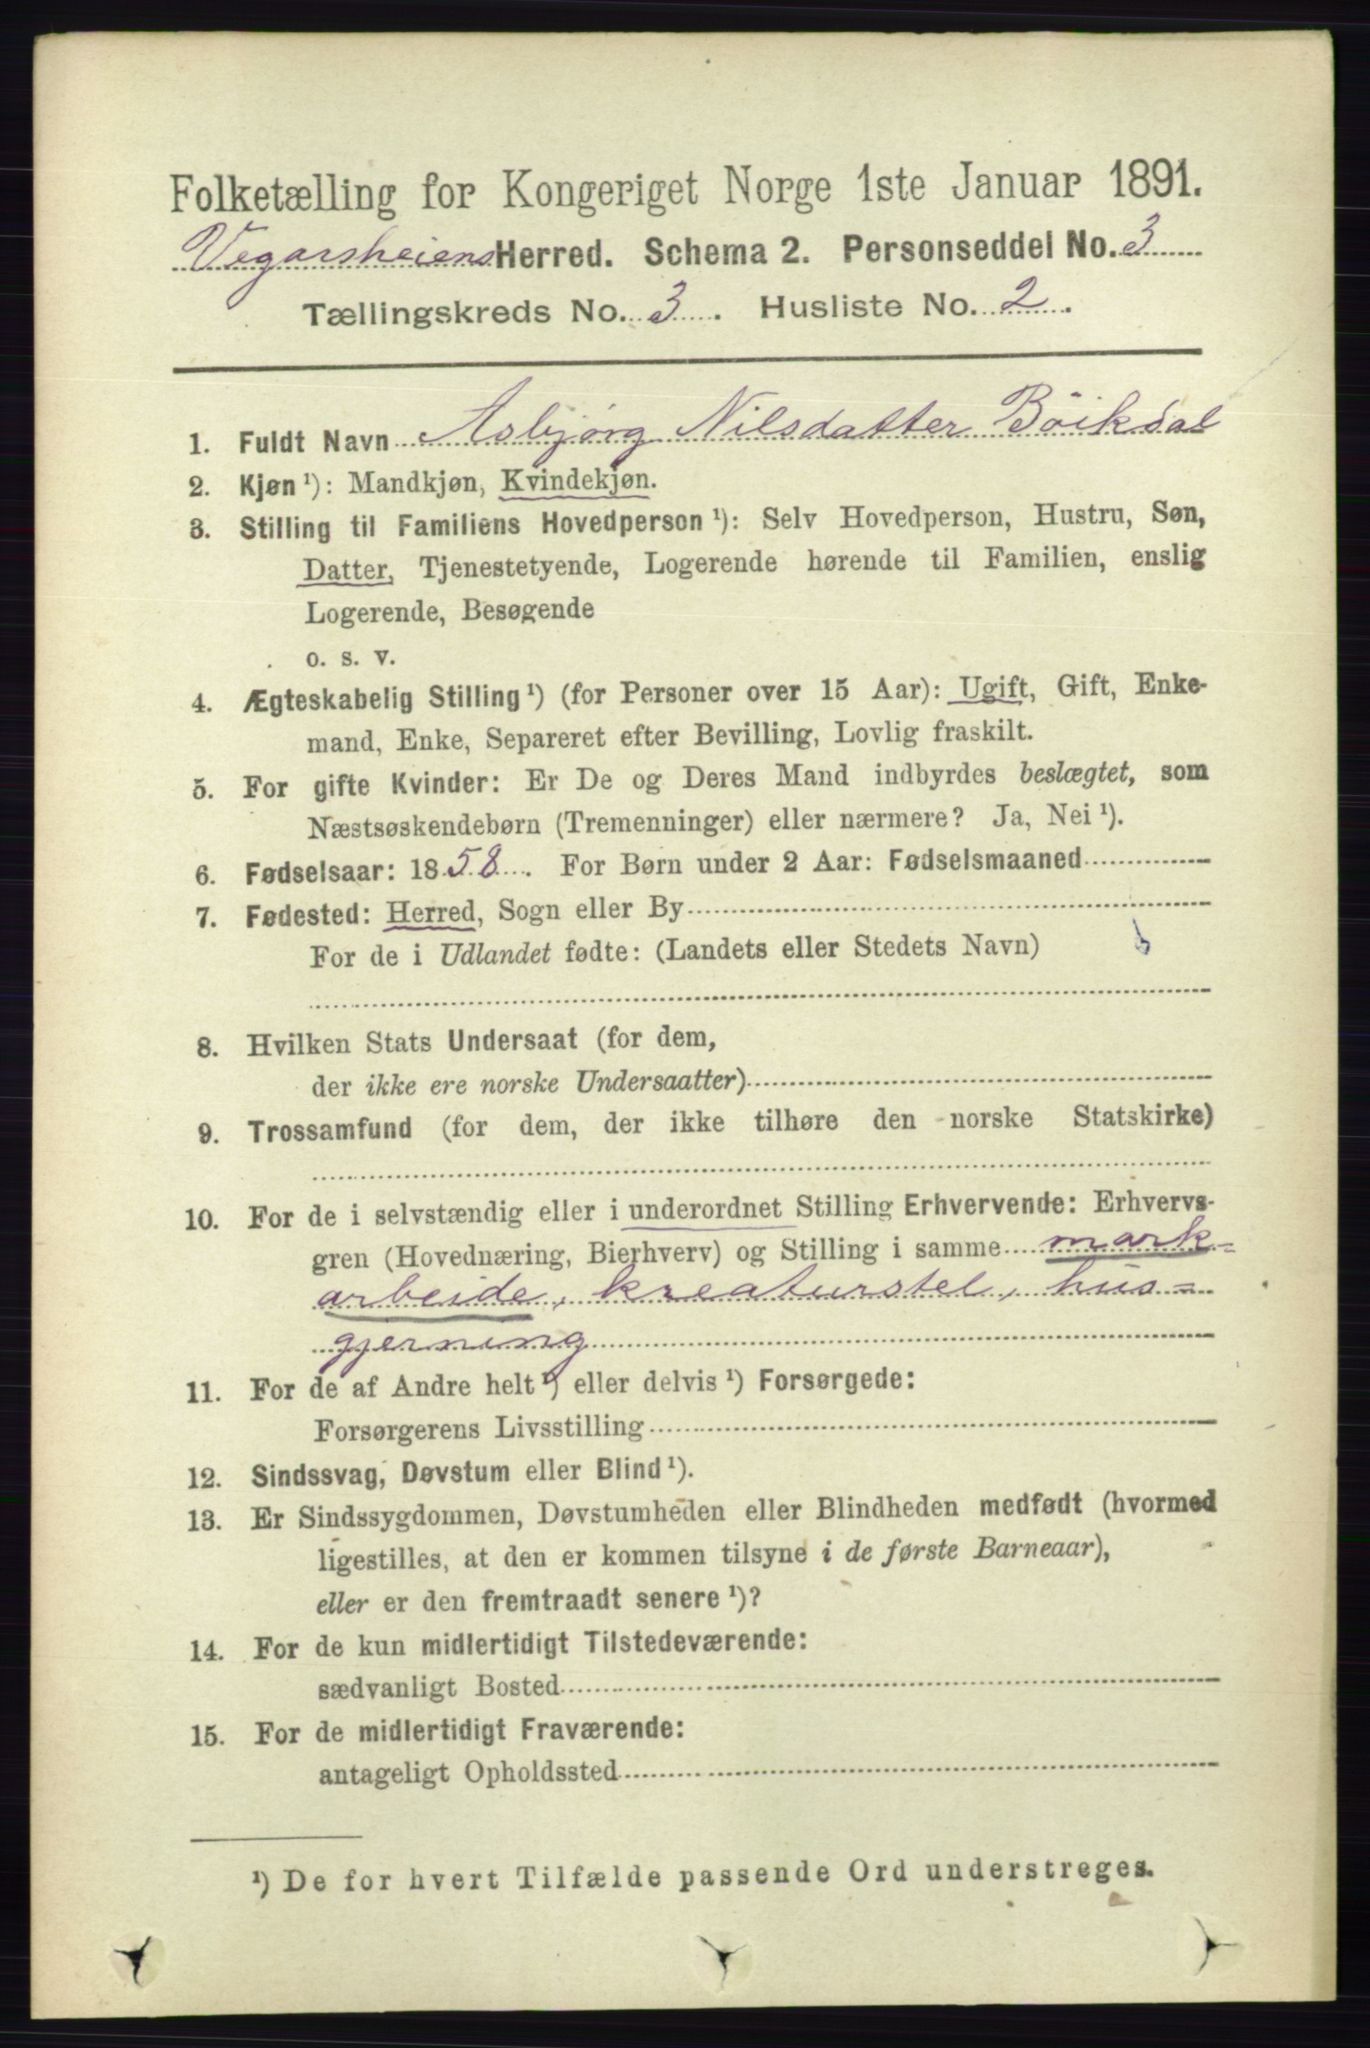 Folketælling for Kongeriget Norge 1ste Januar 1891.
Vegarsheiens Herred. Schema 2. Personseddel No. 3
Tællingskreds No. 3. Husliste No. 2.
1. Fuldt Navn Asbjørg Nilsdatter Böikdal
2. Kjøn ¹): Mandkjøn, Kvindekjøn.
3. Stilling til Familiens Hovedperson ¹): Selv Hovedperson, Hustru, Søn,
Datter, Tjenestetyende, Logerende hørende til Familien, enslig
Logerende, Besøgende
o. s. v.
4. Ægteskabelig Stilling ¹) (for Personer over 15 Aar): Ugift, Gift, Enke-
mand, Enke, Separeret efter Bevilling, Lovlig fraskilt.
5. For gifte Kvinder: Er De og Deres Mand indbyrdes beslægtet, som
Næstsøskendebørn (Tremenninger) eller nærmere? Ja, Nei ¹).
6. Fødselsaar: 1858. For Børn under 2 Aar: Fødselsmaaned
7. Fødested: Herred, Sogn eller By
For de i Udlandet fødte: (Landets eller Stedets Navn) b
8. Hvilken Stats Undersaat (for dem,
der ikke ere norske Undersaatter)
9. Trossamfund (for dem, der ikke tilhøre den norske Statskirke)
10. For de i selvstændig eller i underordnet Stilling Erhvervende: Erhvervs-
gren (Hovednæring, Bierhverv) og Stilling i samme mark-
arbeide, kreaturstel, hus-
gjerning
11. For de af Andre helt ¹) eller delvis ¹) Forsørgede:
Forsørgerens Livsstilling
12. Sindssvag, Døvstum eller Blind ¹).
13. Er Sindssygdommen, Døvstumheden eller Blindheden medfødt (hvormed
ligestilles, at den er kommen tilsyne i de første Barneaar),
eller er den fremtraadt senere ¹)?
14. For de kun midlertidigt Tilstedeværende:
sædvanligt Bosted
15. For de midlertidigt Fraværende:
antageligt Opholdssted
¹) De for hvert Tilfælde passende Ord understreges.